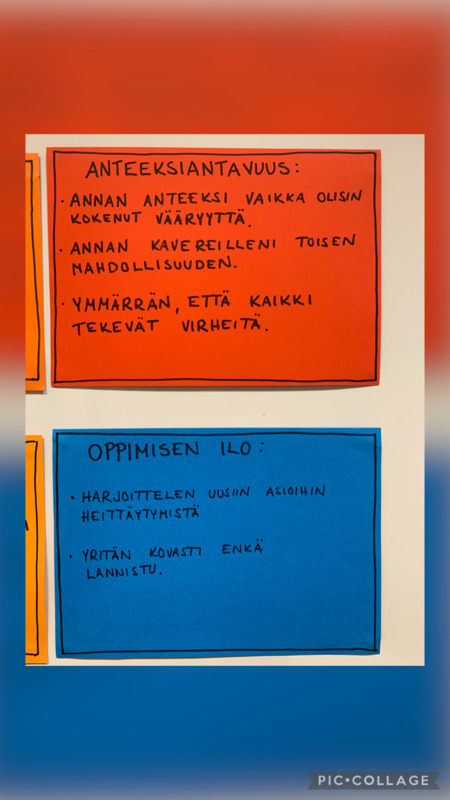 ANTEEKSIANTAVUUS:
· ANNAN ANTEEKSI VAIKKA OLISIN
KOKENUT VÄÄRYYTTÄ.
· ANNAN KAVEREILLENI TOISEN
MAHDOLLISUUDEN.
· YMMÄRRÄN, ETTÄ KAIKKI
TEKEVÄT VIRHEITÄ.
OPPIMISEN ILO:
· HARJOITTELEN UUSIIN ASIOIHIN
HEITTÄYTYMISTÄ
· YRITÄN KOVASTI ENKÄ
LANNISTU.
PIC•COLLAGE